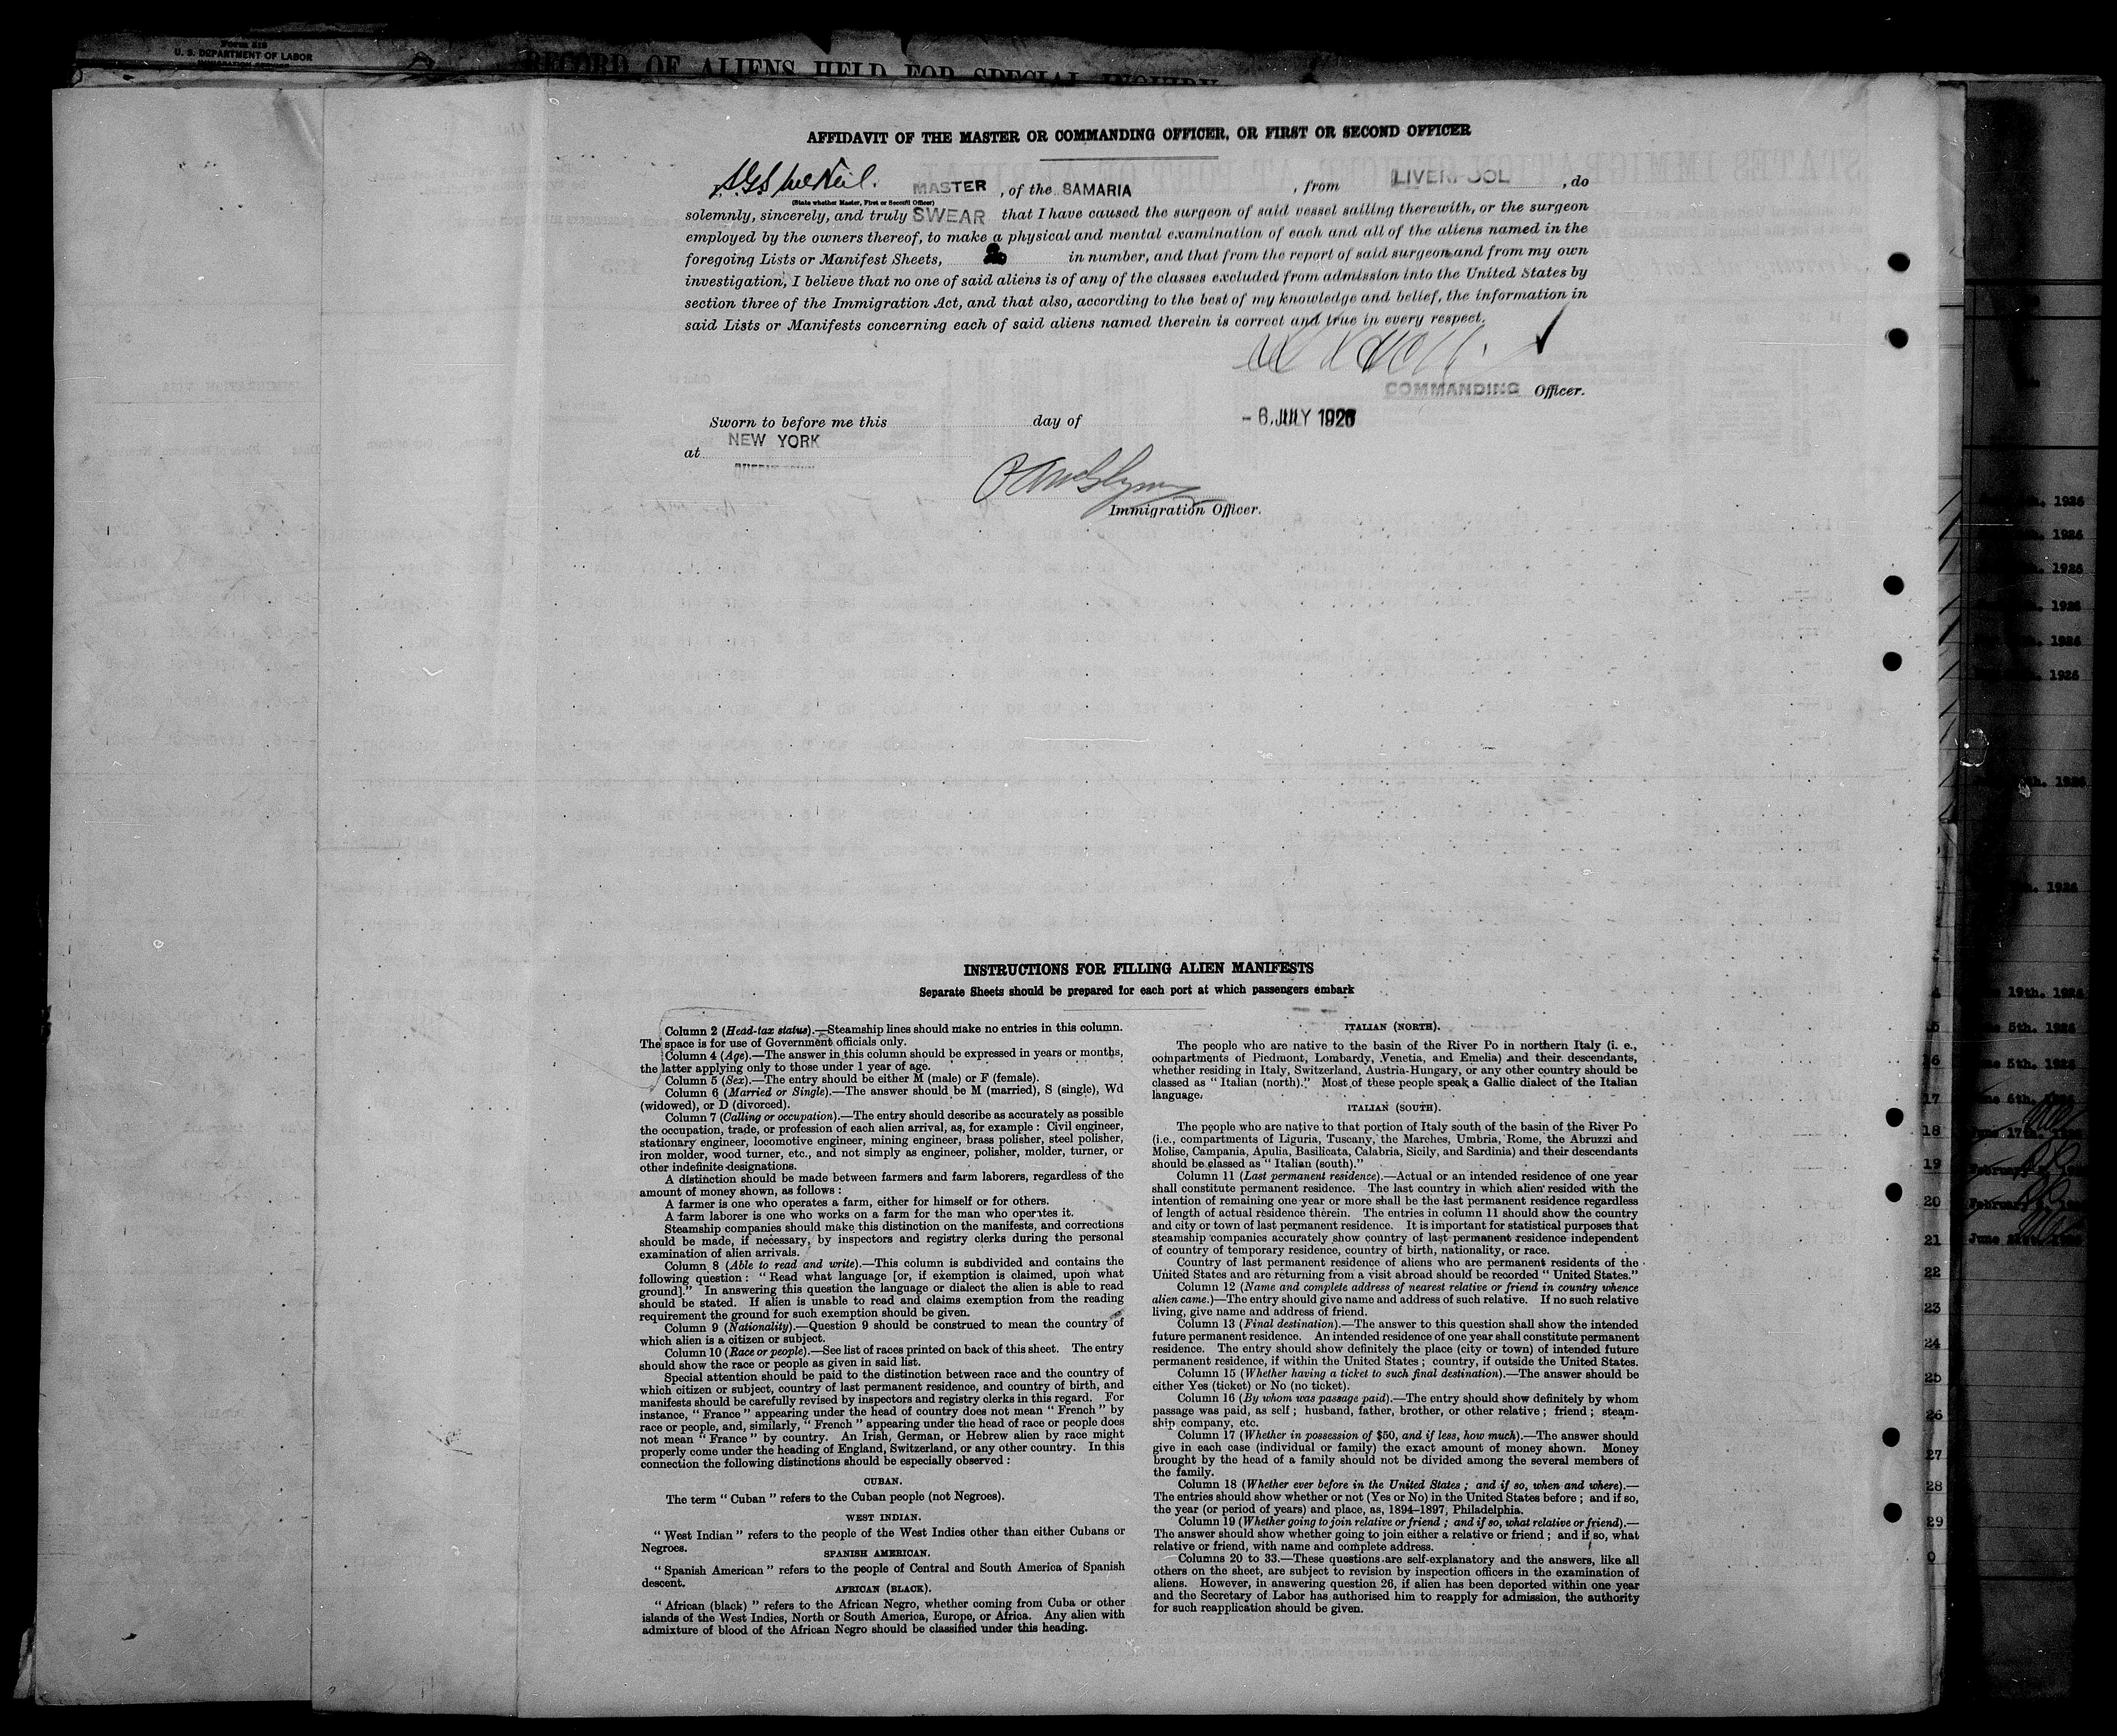 Form 519
U. S. DEPARTMENT OF LABOR
IMMIGRATION SERVICE
RECORD OF ALIENS HELD FOR SPECIAL INQUIRY
AFFIDAVIT OF THE MASTER OR COMMANDING OFFICER, OR FIRST OR SECOND OFFICER
S.G.S. McNeil. MASTER, of the SAMARIA, from LIVERPOOL, do
(State whether Master, First or Second Officer)
solemnly, sincerely, and truly SWEAR that I have caused the surgeon of said vessel sailing therewith, or the surgeon
employed by the owners thereof, to make a physical and mental examination of each and all of the aliens named in the
foregoing Lists or Manifest Sheets, in number, and that from the report of said surgeon and from my own
investigation, I believe that no one of said aliens is of any of the classes excluded from admission into the United States by
section three of the Immigration Act, and that also, according to the best of my knowledge and belief, the information in
said Lists or Manifests concerning each of said aliens named therein is correct and true in every respect.
COMMANDING Officer.
Sworn to before me this day of - 6. JULY 1926
at NEW YORK
Immigration Officer.
INSTRUCTIONS FOR FILLING ALIEN MANIFESTS
Separate Sheets should be prepared for each port at which passengers embark
Column 2 (Head-tax status).—Steamship lines should make no entries in this column.
The space is for use of Government officials only.
Column 4 (Age).—The answer in this column should be expressed in years or months,
the latter applying only to those under 1 year of age.
Column 5 (Sex).—The entry should be either M (male) or F (female).
Column 6 (Married or Single).—The answer should be M (married), S (single), Wd
(widowed), or D (divorced).
Column 7 (Calling or occupation).—The entry should describe as accurately as possible
the occupation, trade, or profession of each alien arrival, as, for example : Civil engineer,
stationary engineer, locomotive engineer, mining engineer, brass polisher, steel polisher,
iron molder, wood turner, etc., and not simply as engineer, polisher, molder, turner, or
other indefinite designations.
A distinction should be made between farmers and farm laborers, regardless of the
amount of money shown, as follows :
A farmer is one who operates a farm, either for himself or for others.
A farm laborer is one who works on a farm for the man who operates it.
Steamship companies should make this distinction on the manifests, and corrections
should be made, if necessary, by inspectors and registry clerks during the personal
examination of alien arrivals.
Column 8 (Able to read and write).—This column is subdivided and contains the
following question : “ Read what language [or, if exemption is claimed, upon what
ground].” In answering this question the language or dialect the alien is able to read
should be stated. If alien is unable to read and claims exemption from the reading
requirement the ground for such exemption should be given.
Column 9 (Nationality).—Question 9 should be construed to mean the country of
which alien is a citizen or subject.
Column 10 (Race or people).—See list of races printed on back of this sheet. The entry
should show the race or people as given in said list.
Special attention should be paid to the distinction between race and the country of
which citizen or subject, country of last permanent residence, and country of birth, and
manifests should be carefully revised by inspectors and registry clerks in this regard. For
instance, “ France ” appearing under the head of country does not mean “ French ” by
race or people, and, similarly, “ French ” appearing under the head of race or people does
not mean “ France ” by country. An Irish, German, or Hebrew alien by race might
properly come under the heading of England, Switzerland, or any other country. In this
connection the following distinctions should be especially observed :
CUBAN.
The term “ Cuban ” refers to the Cuban people (not Negroes).
WEST INDIAN.
“ West Indian ” refers to the people of the West Indies other than either Cubans or
Negroes.
SPANISH AMERICAN.
“ Spanish American ” refers to the people of Central and South America of Spanish
descent.
AFRICAN (BLACK).
“ African (black) ” refers to the African Negro, whether coming from Cuba or other
islands of the West Indies, North or South America, Europe, or Africa. Any alien with
admixture of blood of the African Negro should be classified under this heading.
ITALIAN (NORTH).
The people who are native to the basin of the River Po in northern Italy (i. e.,
compartments of Piedmont, Lombardy, Venetia, and Emelia) and their descendants,
whether residing in Italy, Switzerland, Austria-Hungary, or any other country should be
classed as “ Italian (north).” Most of these people speak a Gallic dialect of the Italian
language.
ITALIAN (SOUTH).
The people who are native to that portion of Italy south of the basin of the River Po
(i.e., compartments of Liguria, Tuscany, the Marches, Umbria, Rome, the Abruzzi and
Molise, Campania, Apulia, Basilicata, Calabria, Sicily, and Sardinia) and their descendants
should be classed as “ Italian (south).”
Column 11 (Last permanent residence).—Actual or an intended residence of one year
shall constitute permanent residence. The last country in which alien resided with the
intention of remaining one year or more shall be the last permanent residence regardless
of length of actual residence therein. The entries in column 11 should show the country
and city or town of last permanent residence. It is important for statistical purposes that
steamship companies accurately show country of last permanent residence independent
of country of temporary residence, country of birth, nationality, or race.
Country of last permanent residence of aliens who are permanent residents of the
United States and are returning from a visit abroad should be recorded “ United States.”
Column 12 (Name and complete address of nearest relative or friend in country whence
alien came.)—The entry should give name and address of such relative. If no such relative
living, give name and address of friend.
Column 13 (Final destination).—The answer to this question shall show the intended
future permanent residence. An intended residence of one year shall constitute permanent
residence. The entry should show definitely the place (city or town) of intended future
permanent residence, if within the United States ; country, if outside the United States.
Column 15 (Whether having a ticket to such final destination).—The answer should be
either Yes (ticket) or No (no ticket).
Column 16 (By whom was passage paid).—The entry should show definitely by whom
passage was paid, as self ; husband, father, brother, or other relative ; friend ; steam-
ship company, etc.
Column 17 (Whether in possession of $50, and if less, how much).—The answer should
give in each case (individual or family) the exact amount of money shown. Money
brought by the head of a family should not be divided among the several members of
the family.
Column 18 (Whether ever before in the United States ; and if so, when and where).—
The entries should show whether or not (Yes or No) in the United States before ; and if so,
the year (or period of years) and place, as, 1894-1897, Philadelphia.
Column 19 (Whether going to join relative or friend ; and if so, what relative or friend).—
The answer should show whether going to join either a relative or friend ; and if so, what
relative or friend, with name and complete address.
Columns 20 to 33.—These questions are self-explanatory and the answers, like all
others on the sheet, are subject to revision by inspection officers in the examination of
aliens. However, in answering question 26, if alien has been deported within one year
and the Secretary of Labor has authorised him to reapply for admission, the authority
for such reapplication should be given.
1926
1926
1926
1926
1926
1926
1926
1926
19th. 1926
5th. 1926
16 5th. 1926
17 6th. 1926
18 June 17th.
19 February
20 February
21 June
22
23
24
25
26
27
28
29